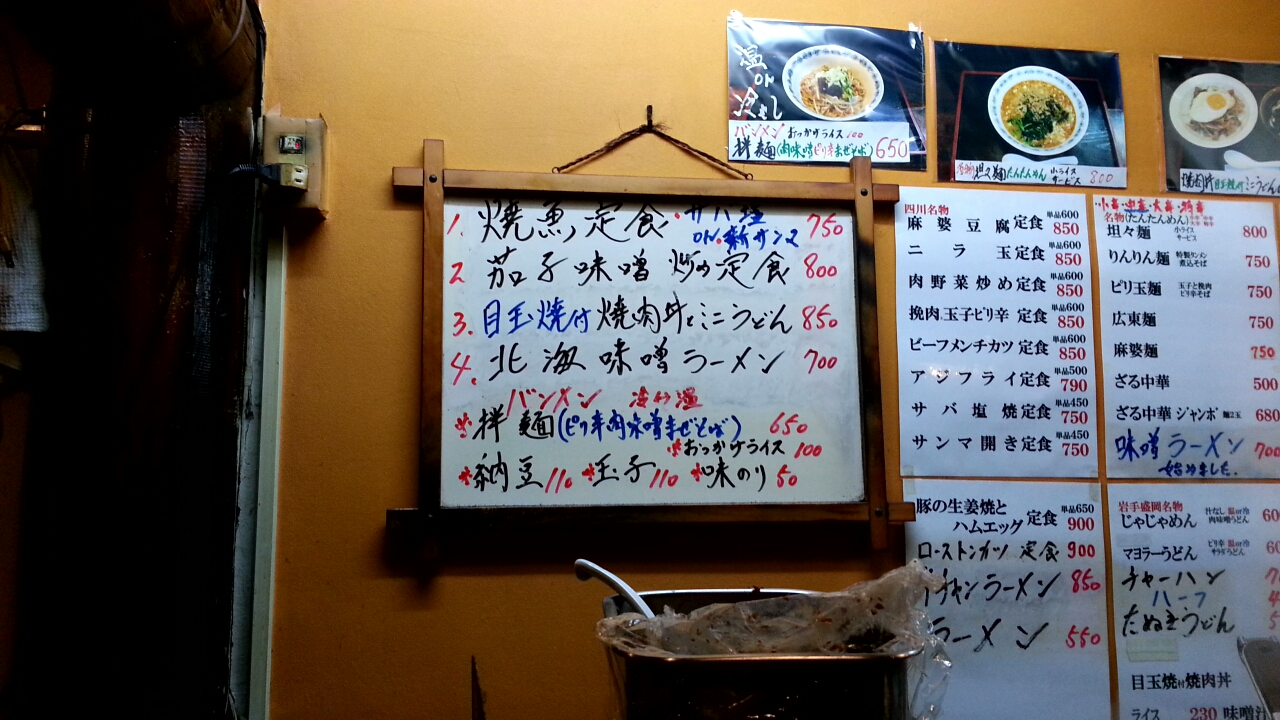 温
on
冷し
バンメン おっかけライス100
拌麺(肉味噌ピリ辛まぜそば)650
坦々麺 たんたんめん 小ライス サービス 800
焼肉丼 目玉焼付 ミニうどん
1. 焼魚定食 ・サバ塩 750
on 新サンマ
2 茄子味噌炒め定食 800
3. 目玉焼付焼肉丼とミニうどん 850
4. 北海味噌ラーメン 700
バンメン 冷↔温
※拌麺(ピリ辛肉味噌まぜそば) 650
※おっかけライス 100
※納豆110 ※玉子110 ※味のり 50
四川名物
麻婆豆腐定食 単品600 850
ニラ玉定食 単品600 850
肉野菜炒め定食 単品600 850
挽肉玉子ピリ辛定食 単品600 850
ビーフメンチカツ定食 単品600 850
アジフライ定食 単品500 790
サバ塩焼定食 単品450 750
サンマ開き定食 単品450 750
名物(たんたんめん)
坦々麺 小ライス サービス 800
りんりん麺 特製タンメン 煮込そば 750
ピリ玉麺 玉子と挽肉 ピリ辛そば 750
広東麺 750
麻婆麺 750
ざる中華 500
ざる中華ジャンボ 麺2玉 680
味噌ラーメン 700
始めました.
豚の生姜焼と
ハムエッグ 定食 単品650 900
ローストンカツ 定食 900
チャンラーメン 850
ラーメン 550
岩手盛岡名物
じゃじゃめん 汁なし 温or冷 肉味噌うどん
マヨラーうどん ピリ辛 温or冷 サラダうどん
チャーハン
ハーフ
たぬきうどん
目玉焼付焼肉丼
ライス 230 味噌汁